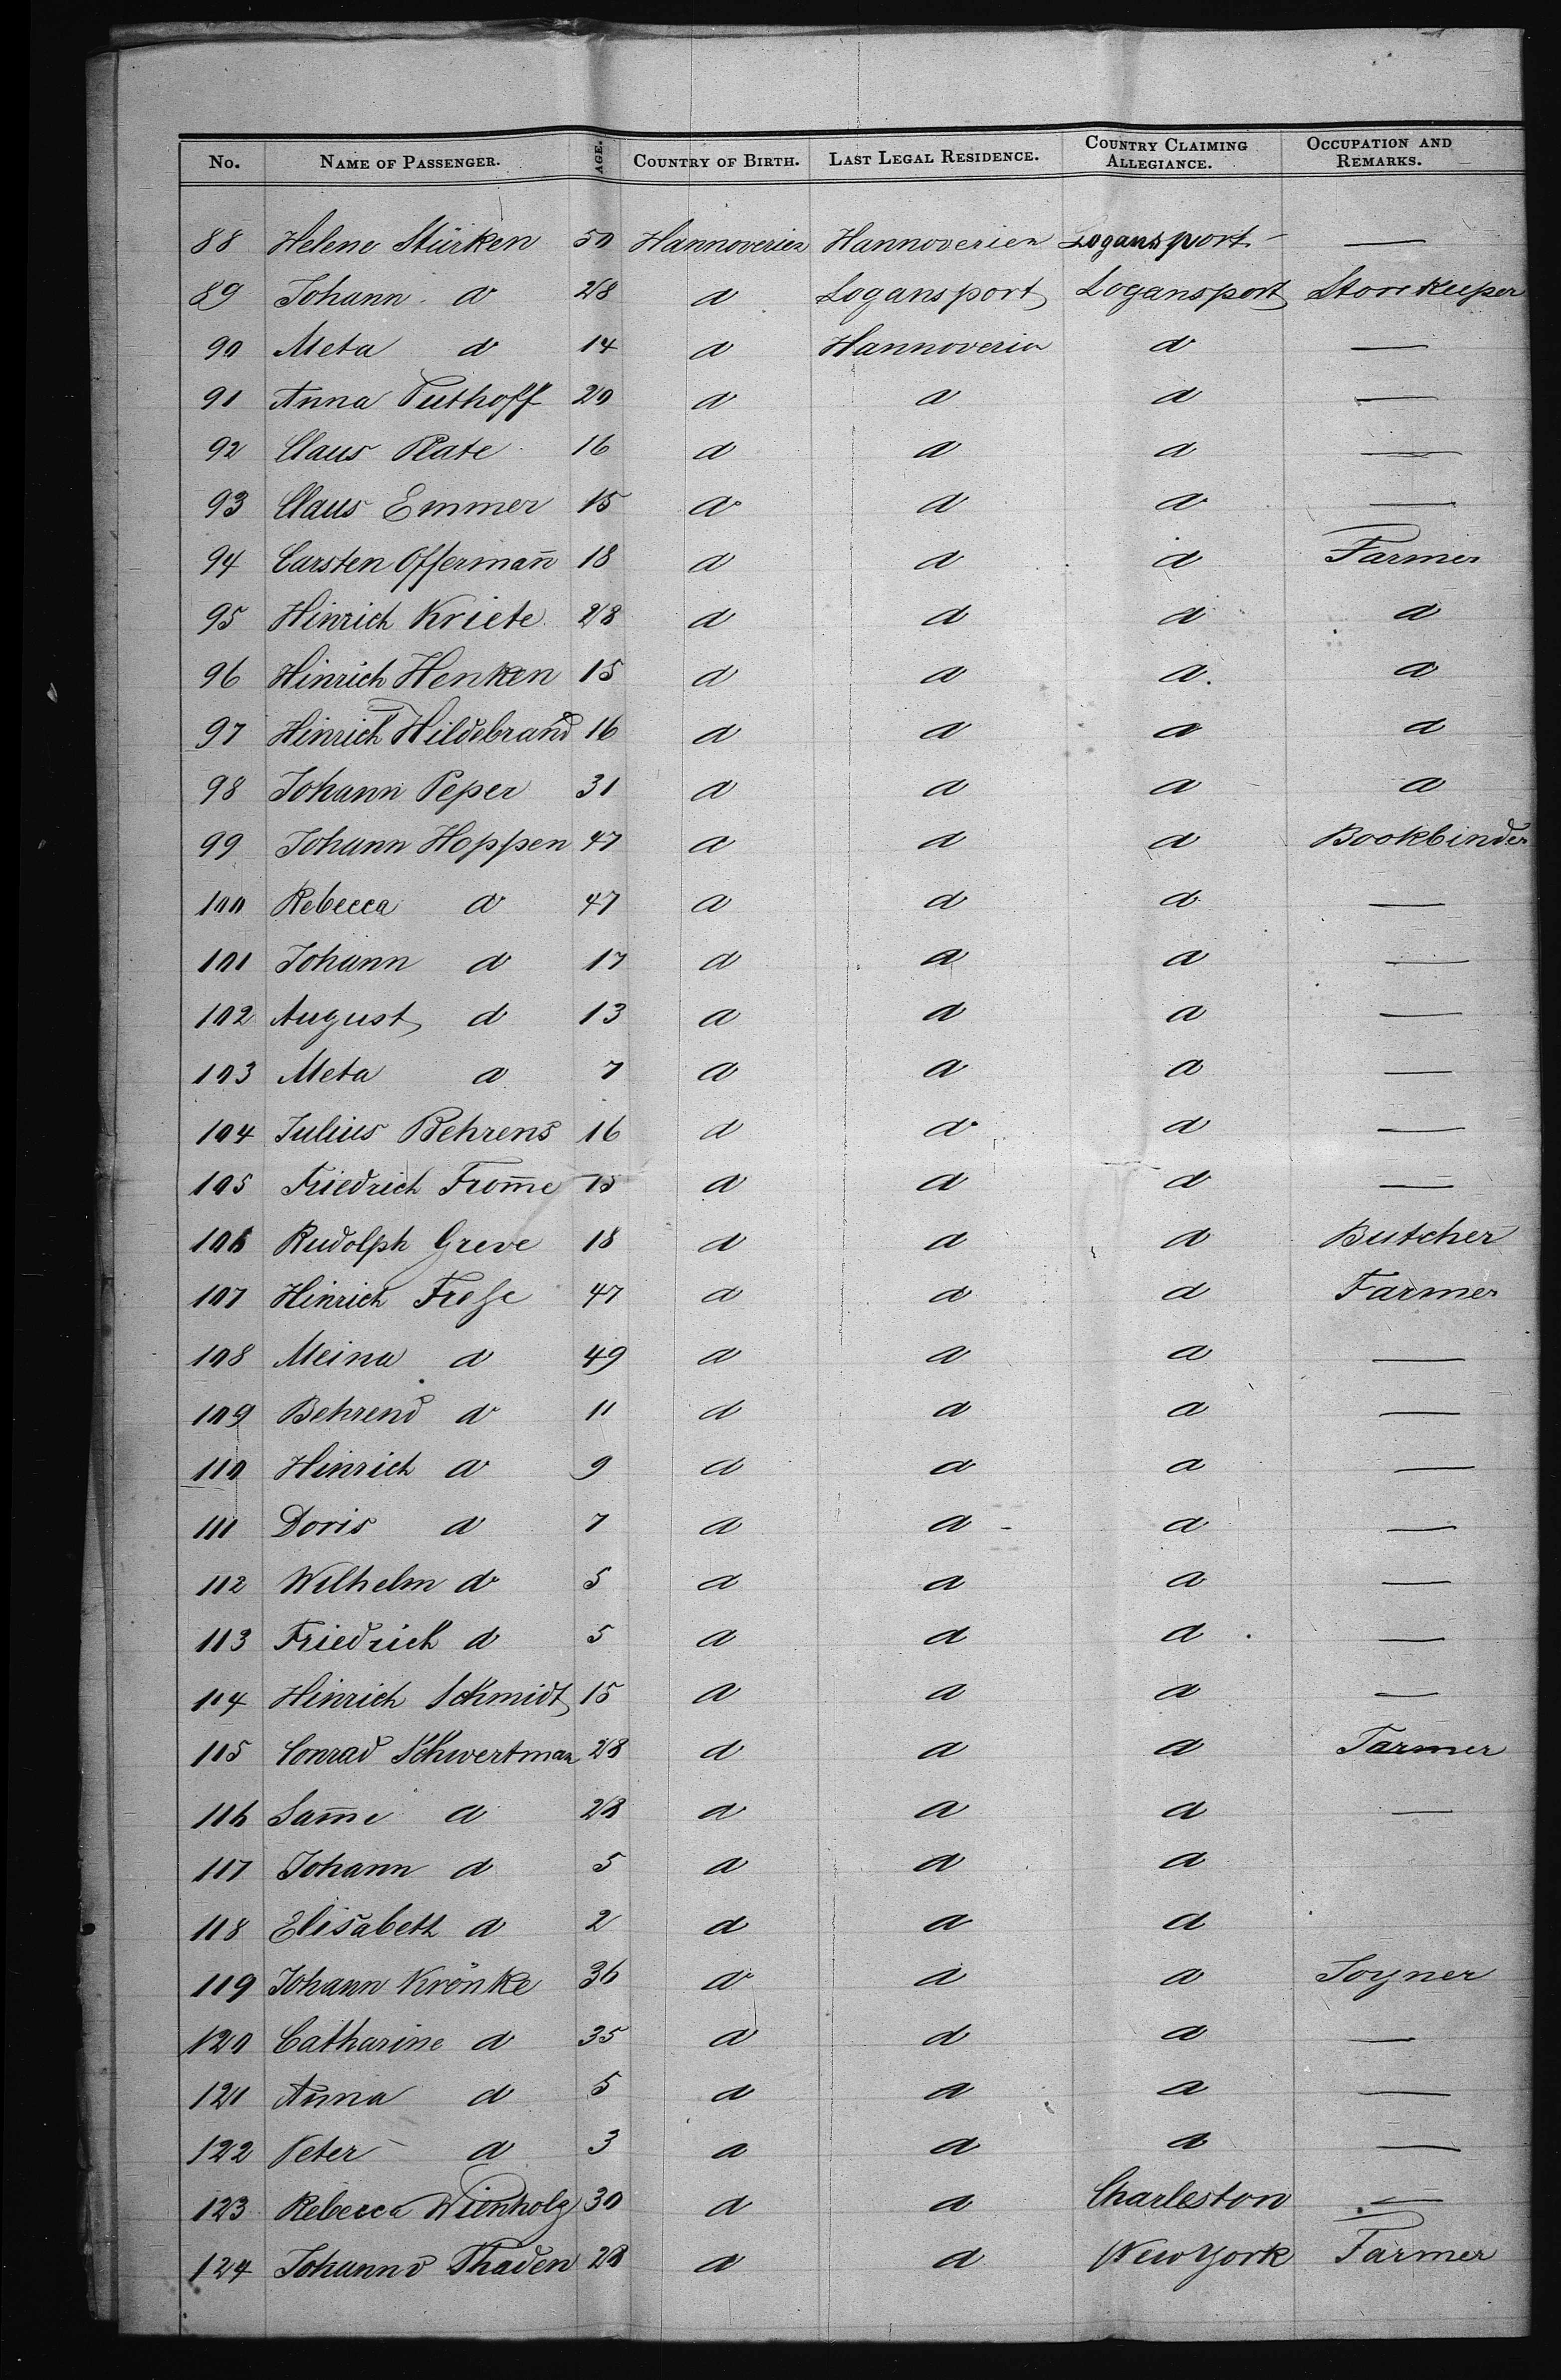 No. NAME OF PASSENGER. AGE. COUNTRY OF BIRTH. LAST LEGAL RESIDENCE. COUNTRY CLAIMING ALLEGIANCE. OCCUPATION AND REMARKS.
88 Helene Stürken 50 Hannoverien Hannoverien Logansport —
89 Johann d 28 d Logansport Logansport Storekeeper
90 Meta d 14 d Hannoverien d —
91 Anna Puthoff 20 d d d —
92 Claus Plate 16 d d d —
93 Claus Emmer 15 d d d —
94 Carsten Offermañ 18 d d d Farmer
95 Hinrich Kriete 28 d d d d
96 Hinrich Henken 15 d d d d
97 Hinrich Hildebrand 16 d d d d
98 Johann Peper 31 d d d d
99 Johann Hoppen 47 d d d Bookbinder
100 Rebecca d 47 d d d —
101 Johann d 17 d d d —
102 August d 13 d d d —
103 Meta d 7 d d d —
104 Julius Behrens 16 d d d —
105 Friedrich From̄e 15 d d d —
106 Rudolph Greve 18 d d d Butcher
107 Hinrich Frese 47 d d d Farmer
108 Meina d 49 d d d —
109 Behrend d 11 d d d —
110 Hinrich d 9 d d d —
111 Doris d 7 d d d —
112 Wilhelm d 5 d d d —
113 Friedrich d 5 d d d —
114 Hinrich Schmidt 15 d d d —
115 Conrad Schwertman 28 d d d Farmer
116 d 28 d d d —
117 Johann d 5 d d d
118 Elisabeth d 2 d d d
119 Johann Krönke 36 d d d Joyner
120 Catharine d 35 d d d —
121 Anna d 5 d d d —
122 Peter d 3 d d d —
123 Rebecca Wienholz 30 d d Charleston —
124 Johann Thaden 28 d d New York Farmer